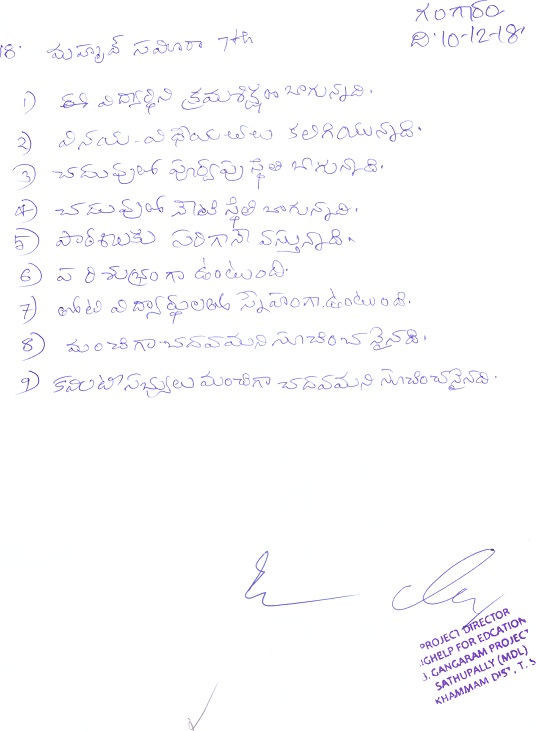 గంగారం
ది·10-12-18
18· మహ్మద్ సమీరా 7th
1) ఈ విద్యార్థిని క్రమశిక్షణ బాగున్నది.
2) వినయ-విధేయతలు కలిగియున్నాడి.
3) చదువులో పూర్వపు స్థితి బాగున్నది.
4) చదువులో నేటి స్థితి బాగున్నది.
5) పాఠశాలకు సరిగానే వస్తున్నాడి.
6) పరిశుభ్రంగా ఉంటుంది.
7) తోటి విద్యార్థులతో స్నేహంగా ఉంటుంది.
8) మంచిగా చదవమని సూచించనైనది.
9) కమిటీ సభ్యులు మంచిగా చదవమని సూచించనైనది.
PROJECT DIRECTOR
IGHELP FOR EDCATION
J. GANGARAM PROJECT
SATHUPALLY (MDL)
KHAMMAM DIST, T. S